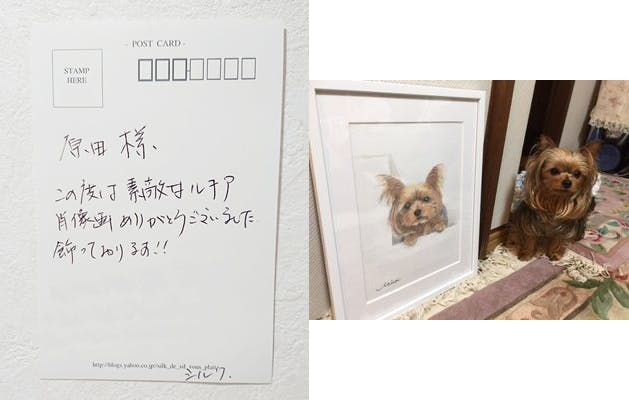 - POST CARD -
STAMP
HERE
原田 様、
この度は 素敵なルチア
肖像画ありがとうございました
飾っております!!
シルク.